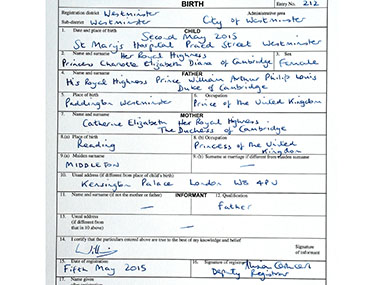 BIRTH
Entry No. 212
Registration district Westminster Administrative area
Sub-district Westminster City of Westminster
1. Date and place of birth CHILD
Second May 2015
St Mary's Hospital Praed Street Westminster
2. Name and surname Her Royal Highness 3. Sex
Princess Charlotte Elizabeth Diana of Cambridge Female
4. Name and surname FATHER
His Royal Highness Prince William Arthur Philip Louis
Duke of Cambridge
5. Place of birth 6. Occupation
Paddington Westminster Prince of the United Kingdom
7. Name and surname MOTHER
Catherine Elizabeth Her Royal Highness
The Duchess of Cambridge
8.(a) Place of birth 8.(b) Occupation
Reading Princess of the United Kingdom
9.(a) Maiden surname 9.(b) Surname at marriage if different from maiden surname
MIDDLETON —
10. Usual address (if different from place of child's birth)
Kensington Palace London W8 4PU
11. Name and surname (if not the mother or father) INFORMANT 12. Qualification
— Father
13. Usual address
(if different from
that in 10 above) —
14. I certify that the particulars entered above are true to the best of my knowledge and belief
Signature
of informant
15. Date of registration 16. Signature of registrar
Fifth May 2015 Deputy Registrar
17. Name given